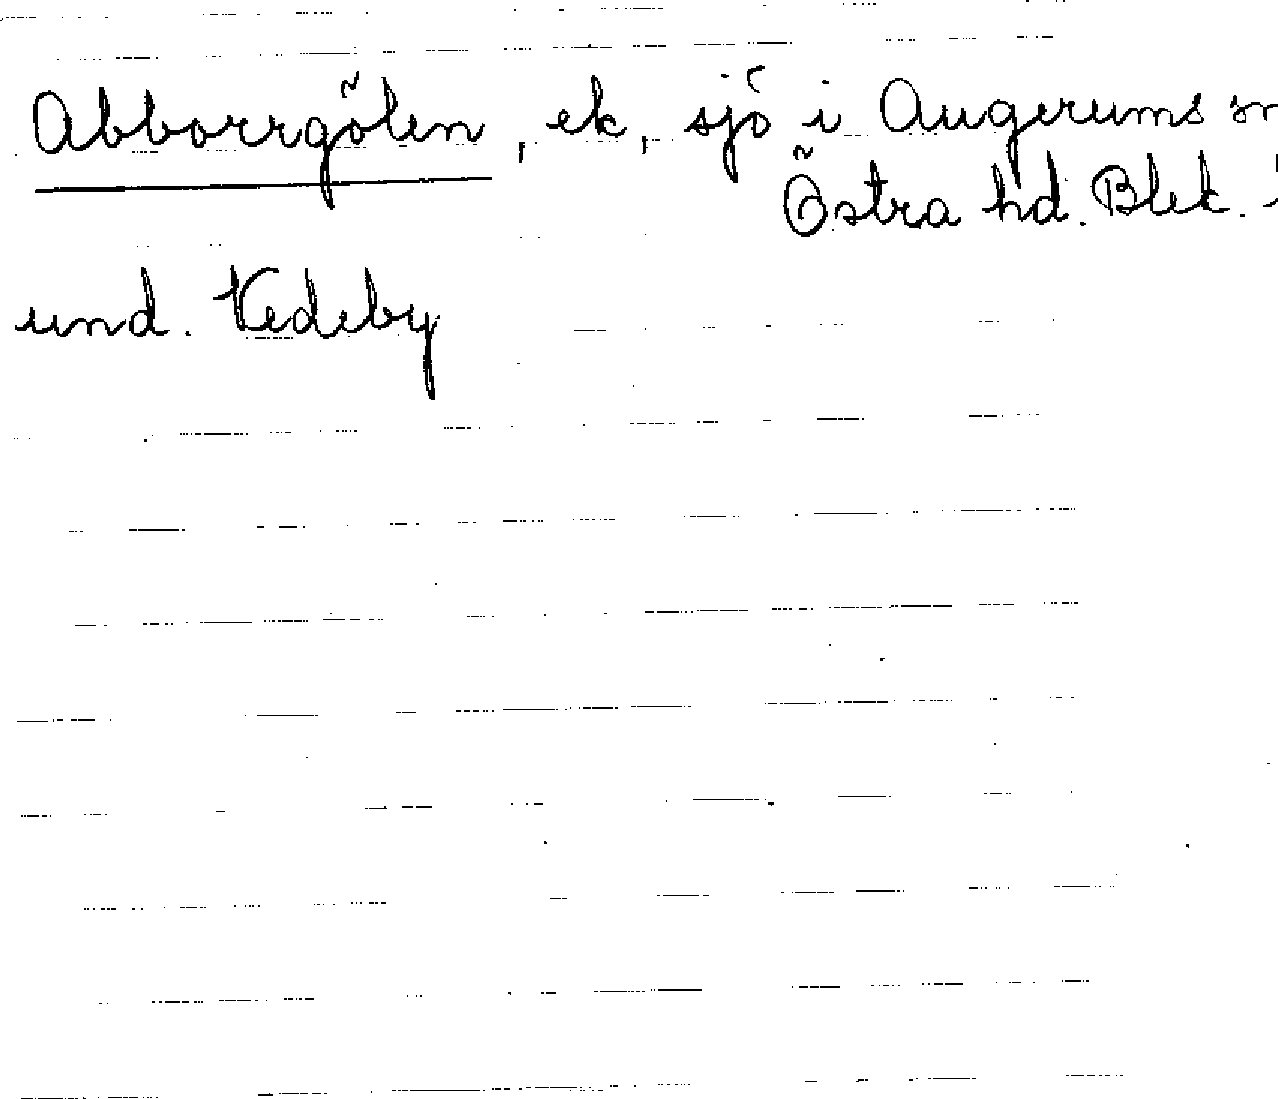 Abborrgölen, ek, sjö i Augerums sn
Östra hd. Blek.
und. Vedeby